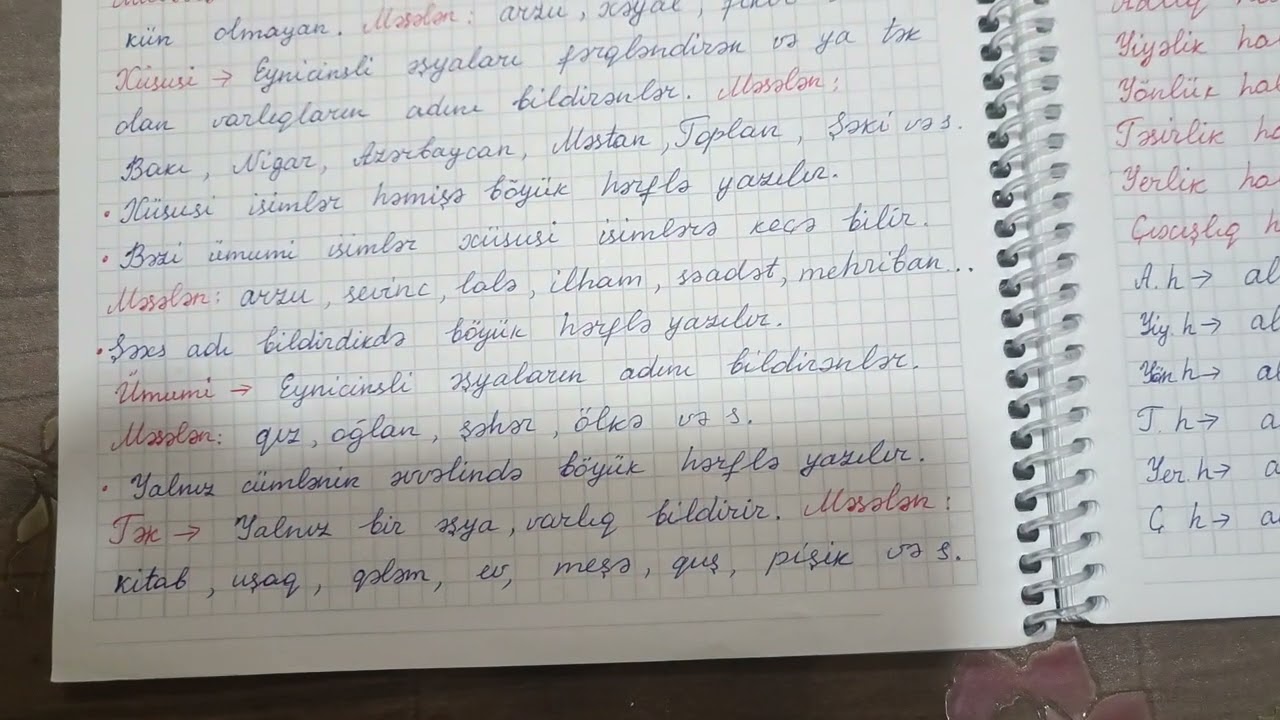 kün olmayan. Məsələn: arzu, xəyal,
Xüsusi → Eynicinsli əşyaları fərqləndirən və ya tək
olan varlıqların adını bildirənlər. Məsələn:
Bakı, Nigar, Azərbaycan, Məstan, Toplan, Şəki və s.
• Xüsusi isimlər həmişə böyük hərflə yazılır.
• Bəzi ümumi isimlər xüsusi isimlərə keçə bilir.
Məsələn: arzu, sevinc, lalə, ilham, səadət, mehriban...
• Şəxs adı bildirdikdə böyük hərflə yazılır.
Ümumi → Eynicinsli əşyaların adını bildirənlər.
Məsələn: qız, oğlan, şəhər, ölkə və s.
• Yalnız cümlənin əvvəlində böyük hərflə yazılır.
Tək → Yalnız bir əşya, varlıq bildirir. Məsələn:
kitab, uşaq, qələm, ev, meşə, quş, pişik və s.
Yiyəlik
Yönlük
Təsirlik
Yerlik
Çıxışlıq
A. h →
Yiy. h →
Yön h →
T. h →
Yer. h →
Ç h →